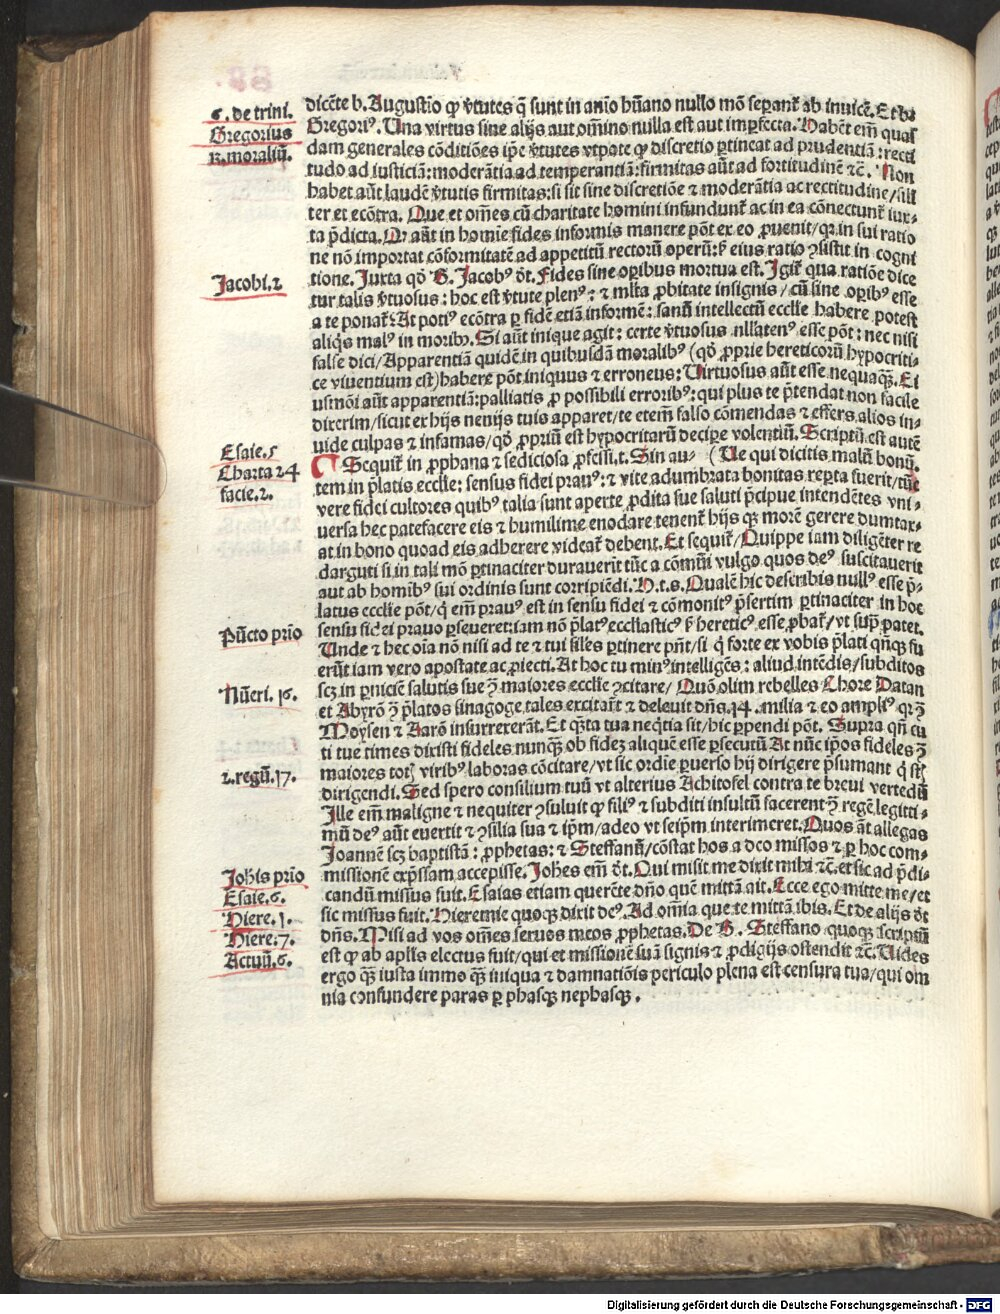 6. de trini.
Gregorius
12. moraliũ.
Jacobi. 2
Esaie. 5
Charta 24
facie. 2.
Pũcto prio
Nũeri. 16.
2. regũ. 17.
Johis prio
Esaie. 6.
Hiere. 1.
Hiere. 7.
Actuũ. 6.
dicẽte b. Augustio ꝙ v̾tutes q̃ sunt in anio hũano nullo mõ sepant᷑ ab inuicẽ. Et bt̃
Gregoriꝰ. Una virtus sine alijs aut om̃ino nulla est aut imꝑfecta. Habẽt em̃ quas
dam generales cõditiões ip̃e v̾tutes vtpote ꝙ discretio ꝑtineat ad prudentiã: recti
tudo ad iusticiã: moderãtia ad temperantiã: firmitas aũt ad fortitudinẽ ⁊c̃. Non
habet aũt laudẽ v̾tutis firmitas: si sit sine discretiõe ⁊ moderãtia ac rectitudine/sil̃i
ter et ecõtra. Que et om̃es cũ charitate homini infundunt᷑ ac in ea cõnectunt᷑ iux⸗
ta p̃dicta. Qꝛ aũt in homĩe fides informis manere põt ex eo ꝓuenit/qꝛ in sui ratio
ne nõ importat cõformitatẽ ad appetitũ rectorũ operũ: s̾ eius ratio ꝯsistit in cogni
tione. Juxta qõ B. Jacobꝰ õt. Fides sine oꝑibus mortua est. Igit᷑ qua ratiõe dice
tur talis v̾tuosus: hoc est v̾tute plenꝰ: ⁊ ml̃ta ꝓbitate insignis/cũ sine oꝑibꝰ esse
a te ponat᷑: At potiꝰ ecõtra ꝑ fidẽ etiã informẽ: sanũ intellectũ eccl̃ie habere potest
aliq̃s malꝰ in moribꝫ. Si aũt inique agit: certe v̾tuosus nllatenꝰ esse põt: nec nisi
false dici/Apparentiã quidẽ in quibusdã moralibꝰ (qõ ꝓprie hereticorũ hypocriti⸗
ce viuentium est) habere põt iniquus ⁊ erroneus: Uirtuosus aũt esse nequaꝗ̃. Ei
usmõi aũt apparentiã: palliatis ꝓ possibili erroribꝰ: qui plus te p̃tendat non facile
dixerim/sicut ex hijs nenijs tuis apparet/te etem̃ falso cõmendas ⁊ effers, alios in⸗
uide culpas ⁊ infamas/qõ ꝓpriũ est hypocritarũ decipe volentiũ. Scriptũ est autẽ
Sequit᷑ in ꝓphana ⁊ sediciosa ꝓfessi. t. Sin au⸗ (Ue qui dicitis malũ bonũ.
tem in p̃latis eccl̃ie: sensus fidei prauꝰ: ⁊ vite adumbrata bonitas reꝑta fuerit/tũc
vere fidei cultores quibꝰ talia sunt aperte ꝓdita sue saluti p̃cipue intendẽtes vni⸗
uersa hec patefacere eis ⁊ humilime enodare tenent᷑ hijs qꝫ morẽ gerere dumtax⸗
at in bono quoad eis adherere videat᷑ debent. Et sequit᷑/Quippe iam diligẽter re
darguti si in tali mõ ꝑtinaciter durauerit tũc a cõmũi vulgo quos deꝰ suscitauerit
aut ab homĩbꝰ sui ordinis sunt corripiẽdi. H. t. s. Qualẽ hic describis nullꝰ esse p̃⸗
latus eccl̃ie põt/q̇ em̃ prauꝰ est in sensu fidei ⁊ cõmonitꝰ p̃sertim ꝑtinaciter in hoc
sensu fidei prauo ꝑseueret: iam nõ p̃latꝰ eccl̃iasticꝰ s̾ hereticꝰ esse ꝓbat᷑/vt sup̃ patet.
Unde ⁊ hec oĩa nõ nisi ad te ⁊ tui sil̃es ꝑtinere pñt/si q̇ forte ex vobis p̃lati qñqꝫ fu
erũt iam vero apostate ac ꝓiecti. At hoc tu minꝰ intelligẽs: aliud intẽdis/subditos
scꝫ in ꝑniciẽ salutis sue ꝯ̃ maiores eccl̃ie ꝯcitare/Quõ olim rebelles Chore Datan
et Abyrõ ꝯ̃ p̃latos sinagoge tales excitart̃ ⁊ deleuit dñs. 14. milia ⁊ eo ampliꝰ qꝛ ꝯ̃
Moysen ⁊ Aarõ insurrexerãt. Et q̃ta tua neq̃tia sit/hic ꝑpendi põt. Supra qñ cu
ti tue times dixisti fideles nunꝗ̃ ob fidẽ aliquẽ esse ꝑsecutũ At nũc ip̃os fideles ꝯ̃
maiores totꝭ viribꝰ laboras cõcitare/vt sic ordĩe ꝑuerso hij dirigere p̃sumant q̇ st̃
dirigendi. Sed spero consilium tuũ vt alterius Achitofel contra te breui vertedũ
Ille em̃ maligne ⁊ nequiter ꝯsuluit ꝙ filiꝰ ⁊ subditi insultũ facerent ꝯ̃ regẽ legitti⸗
mũ deꝰ aũt euertit ⁊ ꝯsilia sua ⁊ ip̃m/adeo vt seip̃m interimeret. Quos aũt allegas
Joannẽ scꝫ baptistã: ꝓphetas: ⁊ Steffanũ/cõstat hos a deo missos ⁊ ꝑ hoc com⸗
missionẽ exp̃ssam accepisse. Johes em̃ õt. Qui misit me dixit mihi ⁊c̃. et sic ad p̃di⸗
candũ missus fuit. Esaias etiam querẽte dño quẽ mittã ait. Ecce ego mitte me/et
sic missus fuit. Hieremie quoqꝫ dixit deꝰ. Ad om̃ia que te mittã ibis. Et de alijs õt
dñs. Misi ad vos om̃es seruos meos ꝓphetas. De B. Steffano quoqꝫ scriptũ
est ꝙ ab apl̃is electus fuit/qui et missionẽ suã signis ⁊ ꝓdigijs ostendit ⁊c̃. Uides
ergo ꝗ̃ iusta immo ꝗ̃ iniqua ⁊ damnatiõis periculo plena est censura tua/qui om
nia confundere paras ꝑ phasqꝫ nephasqꝫ.
Digitalisierung gefördert durch die Deutsche Forschungsgemeinschaft - DFG